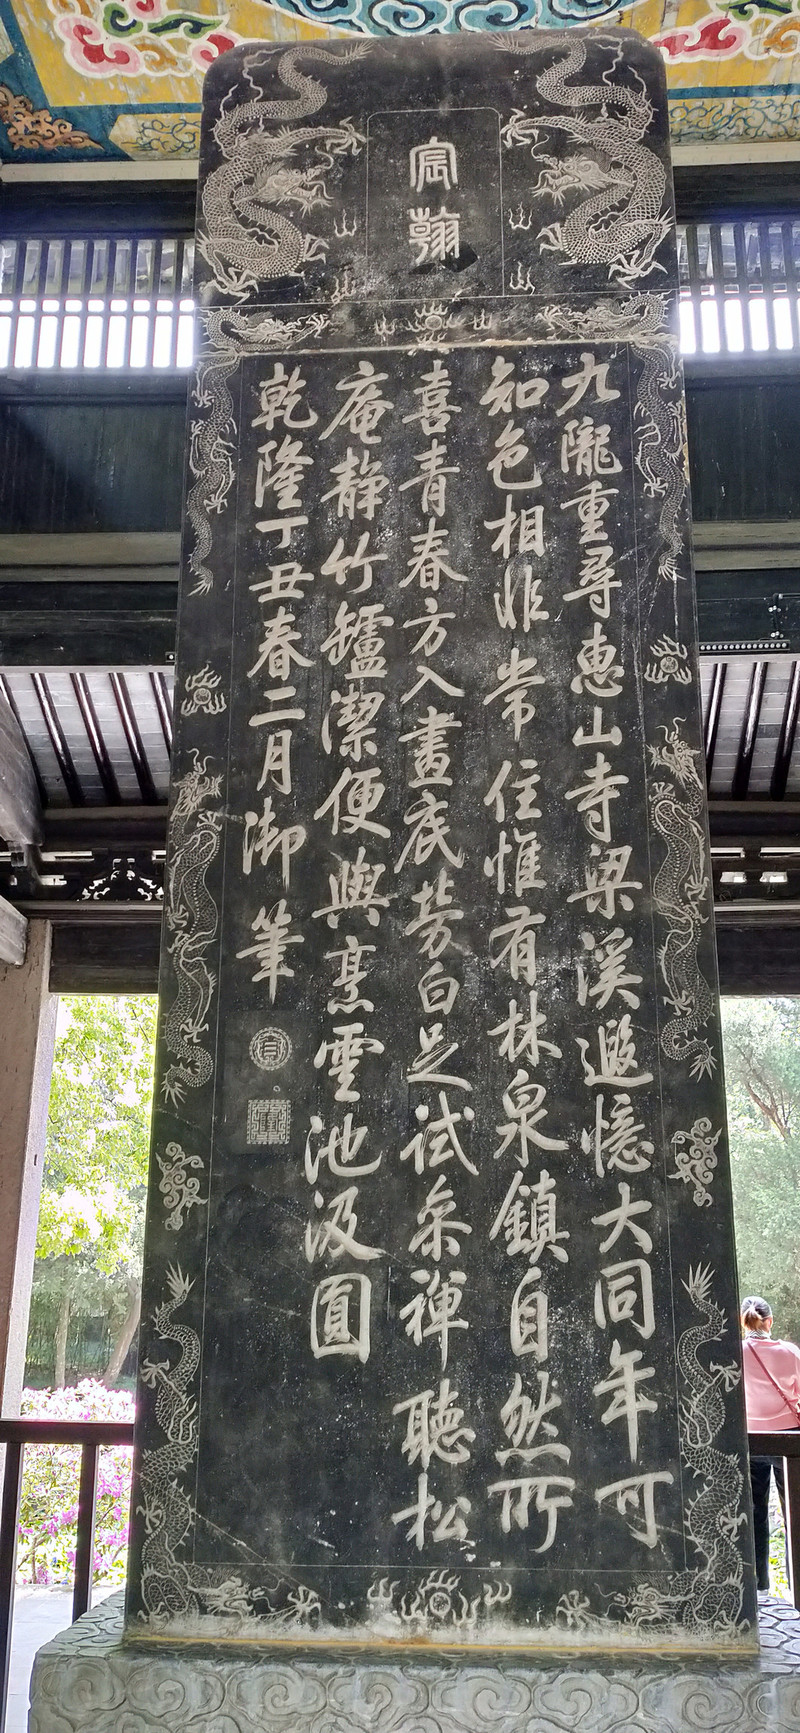 宸翰
九隴重尋惠山寺梁溪遐憶大同年可
知色相非常住惟有林泉鎮自然所
喜青春方入畫底勞白足試參禪聽松
庵静竹罏潔便與烹雲池汲圓
乾隆丁丑春二月御筆